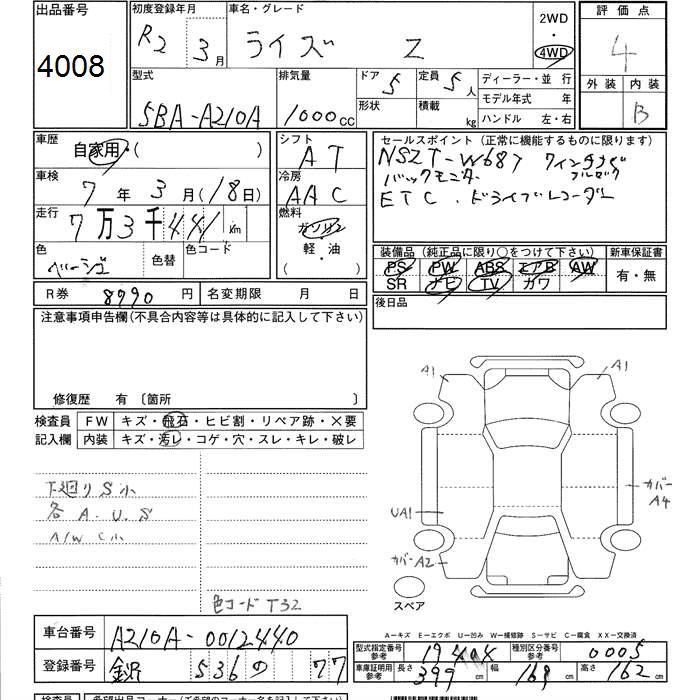 出品番号
4008
初度登録年月
R2 3月
車名・グレード
ライズ Z
2WD
・
4WD
評価点
4
外装 内装
B
型式
5BA-A210A
排気量
1000cc
ドア
5
形状
定員
5人
積載 kg
ディーラー・並行
モデル年式 年
ハンドル 左・右
車歴
自家用・( )
車検
7年3月(18日)
走行
7万3千441Km
色
ベージュ
色替
色コード
シフト
AT
冷房
AAC
燃料
ガソリン
軽・油
( )
セールスポイント(正常に機能するものに限ります)
NSZT-W68T
バックモニター
ETC.ドライブレコーダー
装備品(純正品に限り○をつけて下さい)
新車保証書
PS PW ABS エアB AW
SR ナビ TV カワ
有・無
後日品
R券 8790円
名変期限 月 日
注意事項申告欄(不具合内容等は具体的に記入して下さい)
修復歴 有〔箇所 〕
検査員
記入欄
FW キズ・飛石・ヒビ割・リペア跡・×要
内装 キズ・汚レ・コゲ・穴・スレ・キレ・破レ
下廻りS小
各A.U.S
A/W C小
色コードT32
A1
A1
UA1
カバー
A4
カバーA2
スペア
A-キズ E-エクボ U-凹み W-補修跡 S-サビ C-腐食 XX-交換済
車台番号
A210A-0012440
登録番号
536 の 77
型式指定番号
参考
19404
種別区分番号
参考
0005
車庫証明用
参考
長さ 399cm
幅 169cm
高さ 162cm